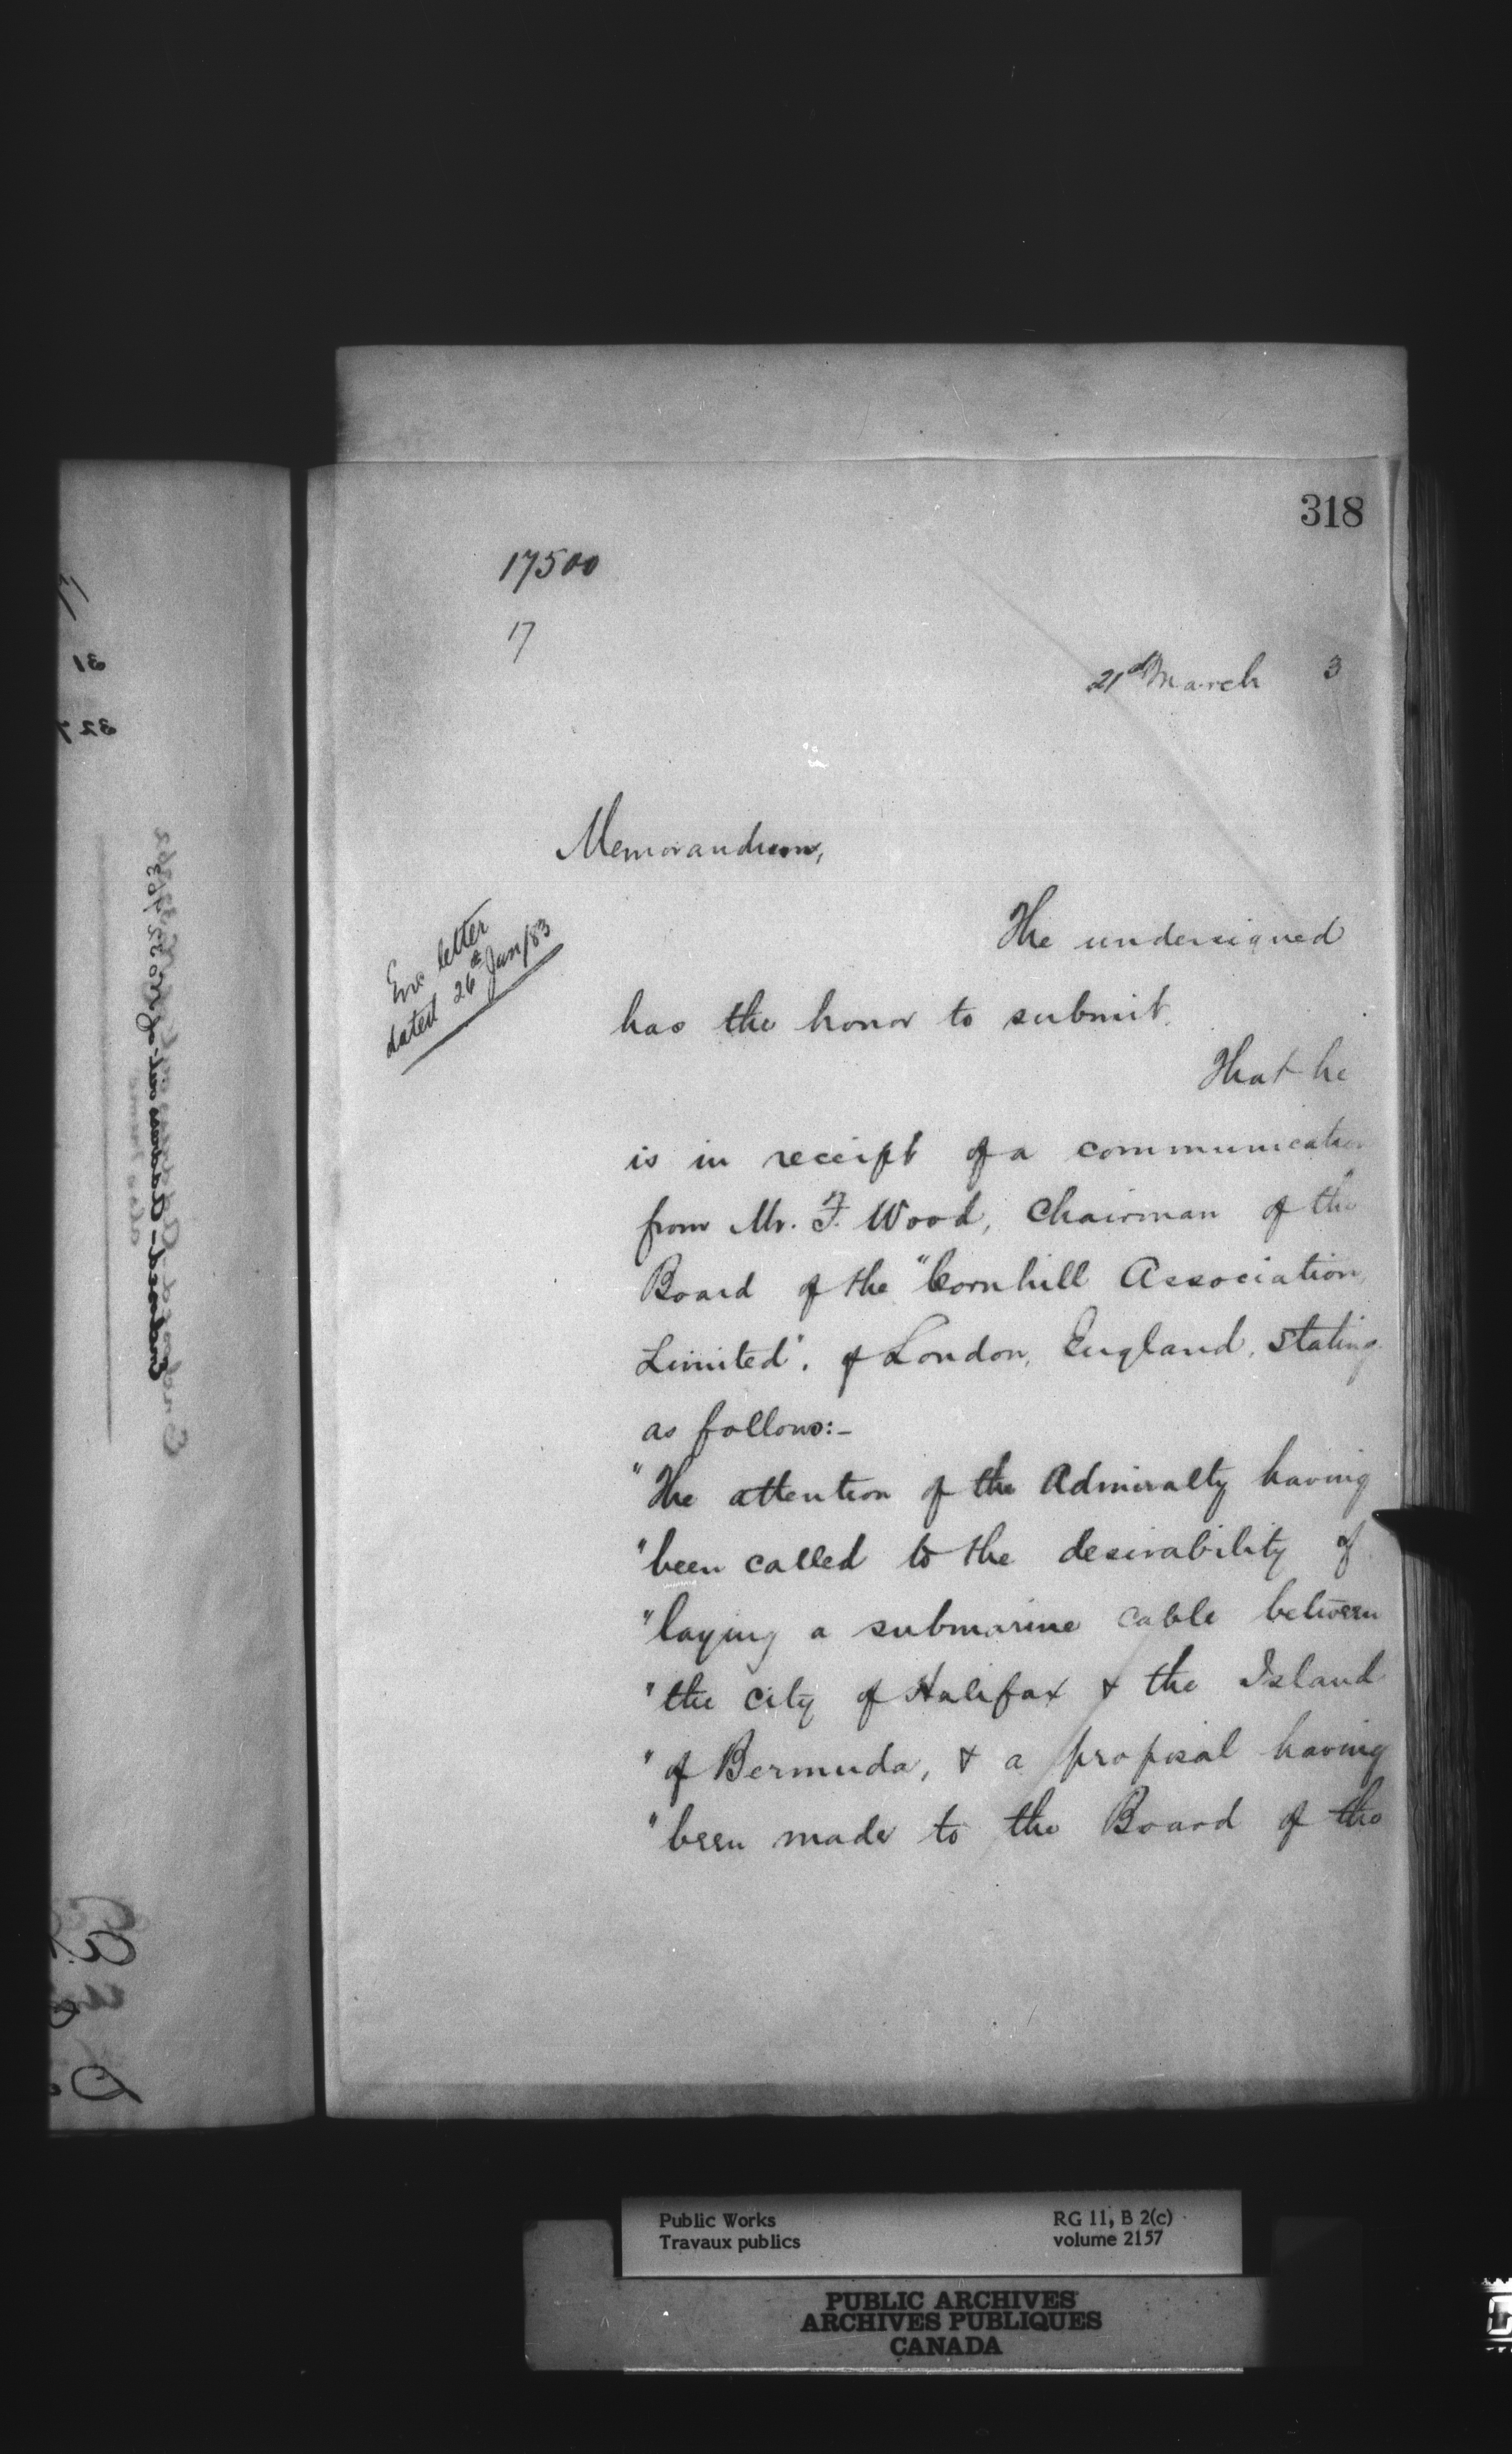 318
17500
17
21st March 3
Memorandum,
Enc letter
dated 26th Jan/83
The undersigned
has the honor to submit.
That he
is in receipt of a communication
from Mr. F. Wood, Chairman of the
Board of the "Cornhill Association,
Limited". of London, England, stating
as follows:-
"The attention of the Admiralty having
"been called to the desirability of
"laying a submarine cable between
"the city of Halifax & the Island
"of Bermuda, & a proposal having
"been made to the Board of the
Public Works
Travaux publics
RG 11, B 2(c)
volume 2157
PUBLIC ARCHIVES
ARCHIVES PUBLIQUES
CANADA